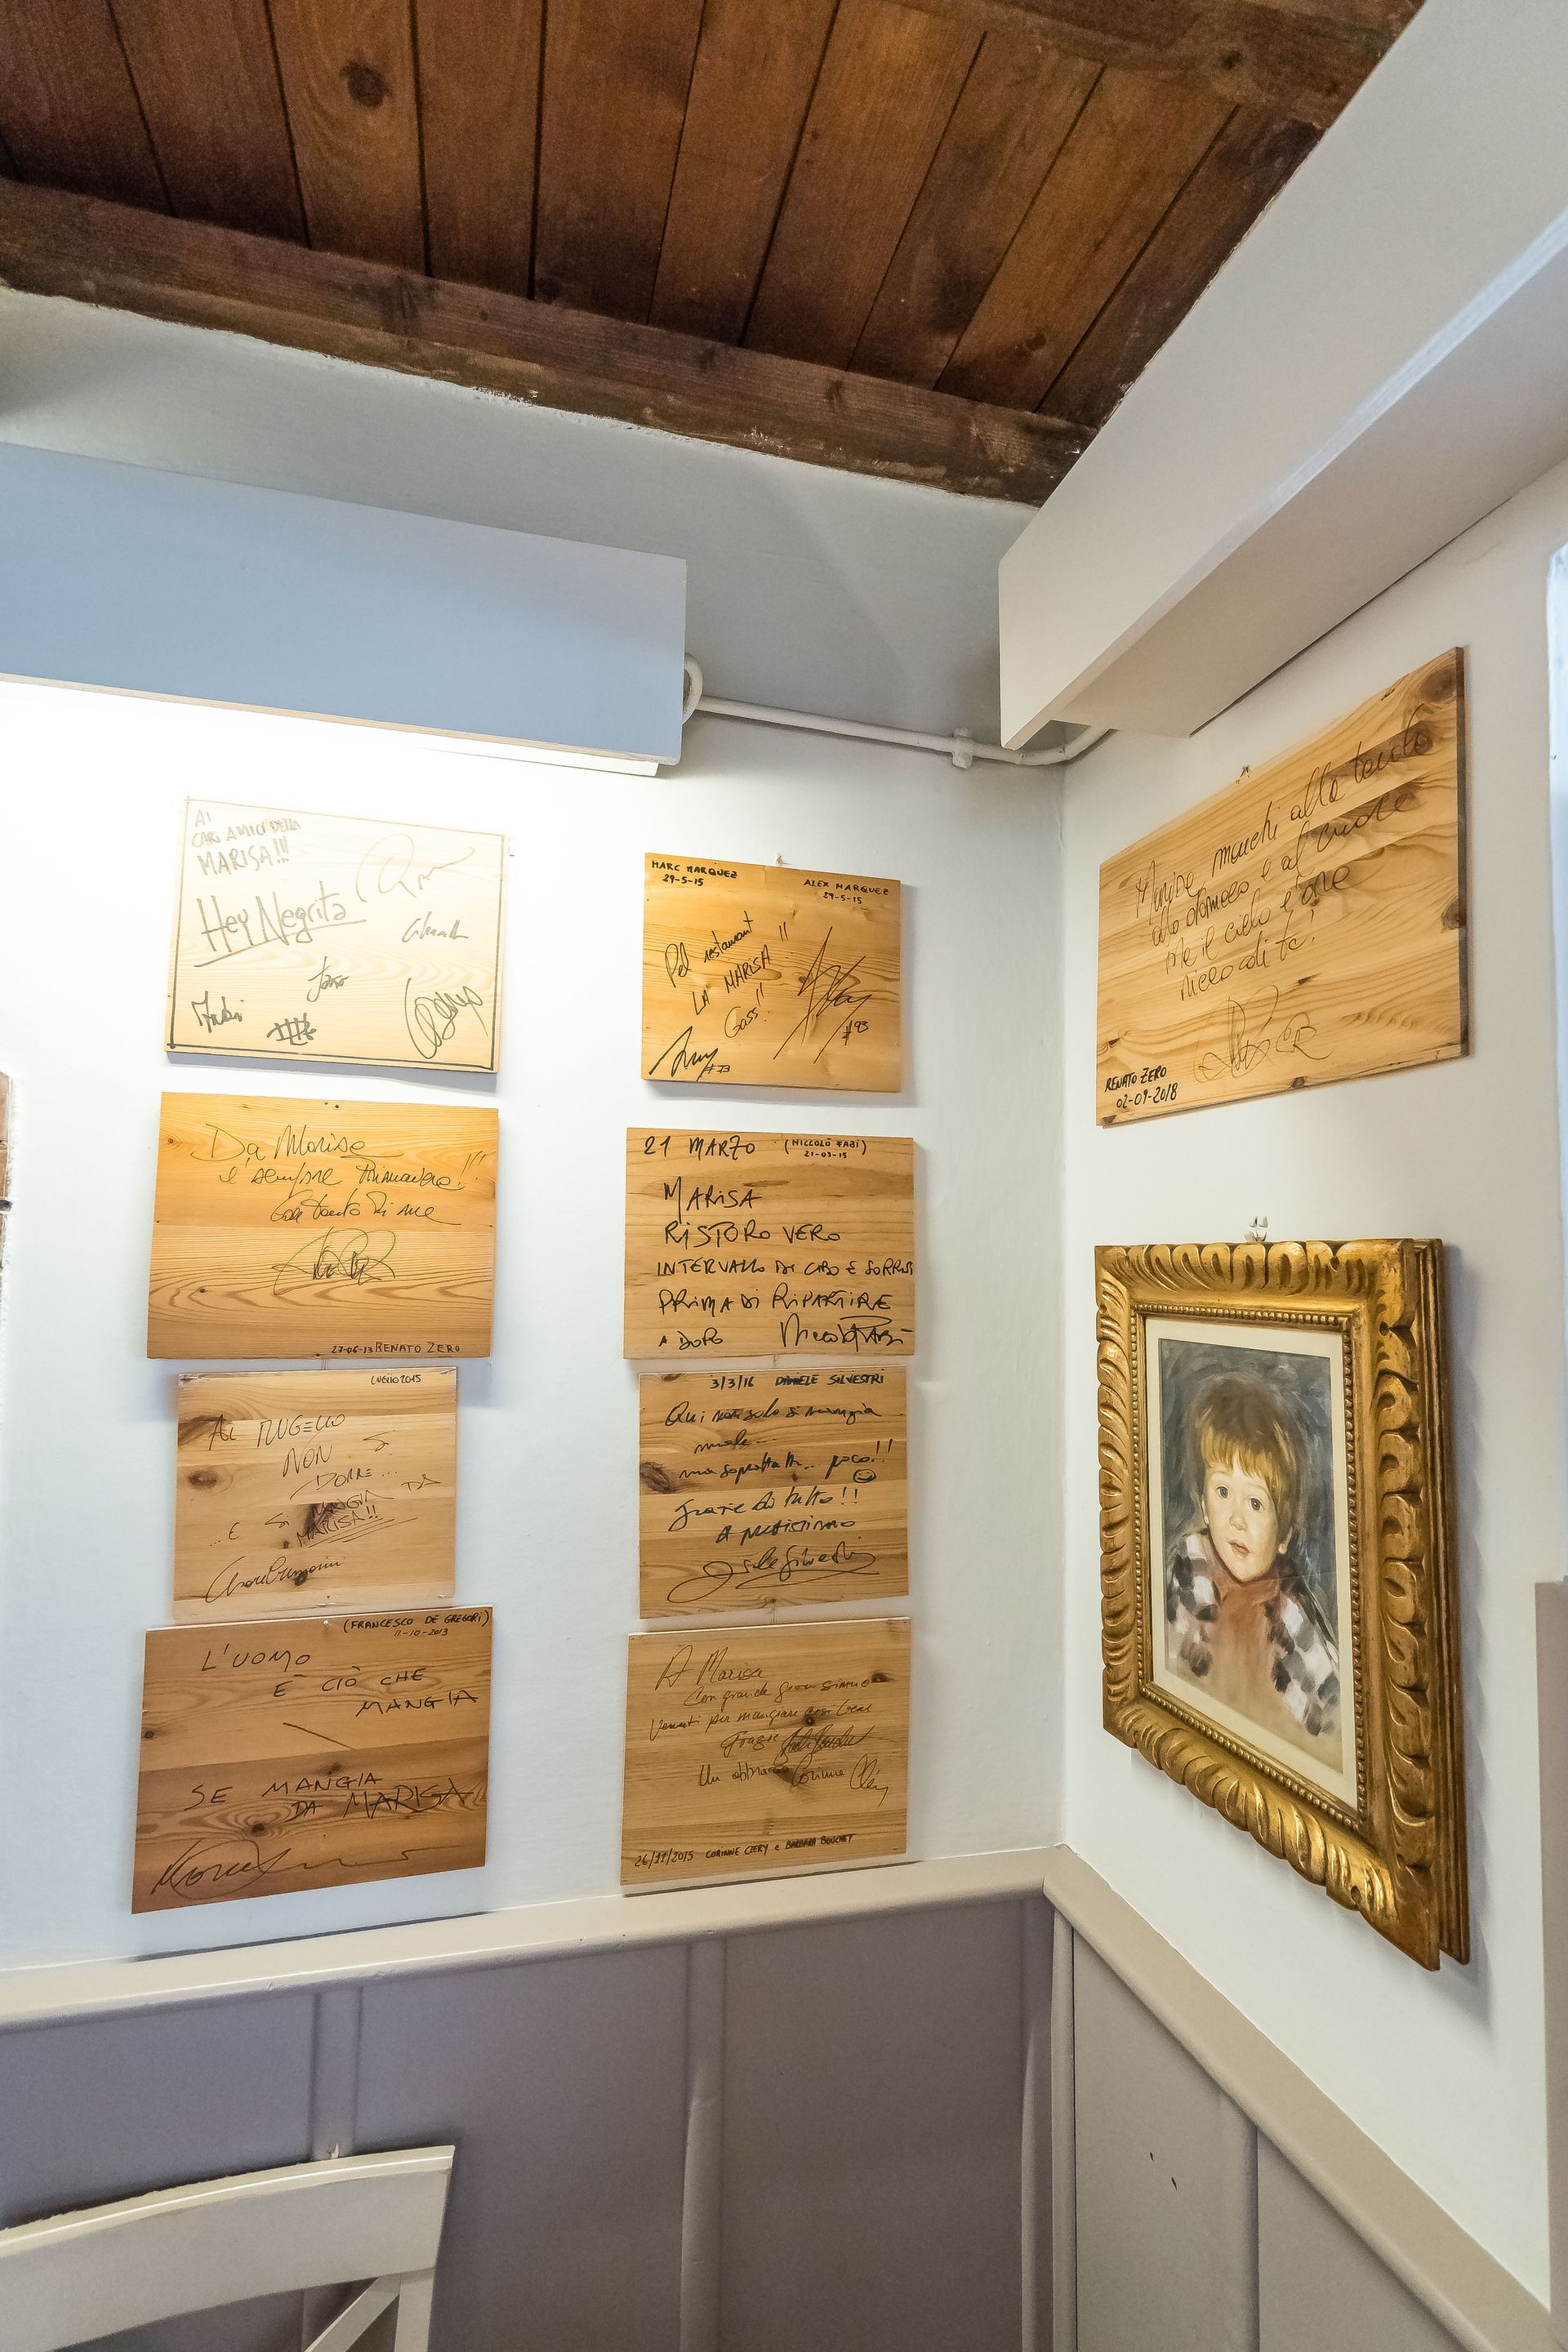 AI
CARI AMICI DELLA
MARISA!!!
Hey Negrita
Da Marisa
e' sempre Primavera!!
Con tanto di me
27-06-13 RENATO ZERO
LUGLIO 2015
AL MUGELLO
NON SI
DORME...
...E SI MANGIA DA
MARISA!!
(FRANCESCO DE GREGORI)
11-10-2013
L'UOMO
È CIÒ CHE
MANGIA
SE MANGIA
DA MARISA
MARC MARQUEZ
29-5-15
ALEX MARQUEZ
29-5-15
Pel restaurant
LA MARISA!!
Gass!!
#93
#73
21 MARZO (NICCOLÒ FABI)
21-03-15
MARISA
RISTORO VERO
INTERVALLO DI CIBO E SORRISI
PRIMA DI RIPARTIRE
A DOPO Niccolò Fabi
3/3/16 DANIELE SILVESTRI
Qui non solo si mangia
male...
ma soprattutto.. poco!!
Grazie di tutto!!
A prestissimo
Daniele Silvestri
A Marisa
Con grande
Venuti per mangiare così bene
Grazie
Un abbraccio Corinne Cléry
26/11/2015 CORINNE CLERY e BARBARA BOUCHET
Marisa, manchi alla tavola
allo stomaco e al cuore
ma il cielo è ora
ricco di te!
RENATO ZERO
02-09-2018